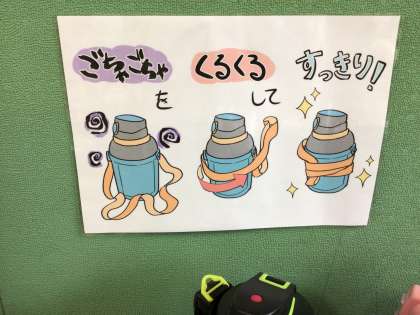 ごちゃごちゃ
を
くるくる
して
すっきり!